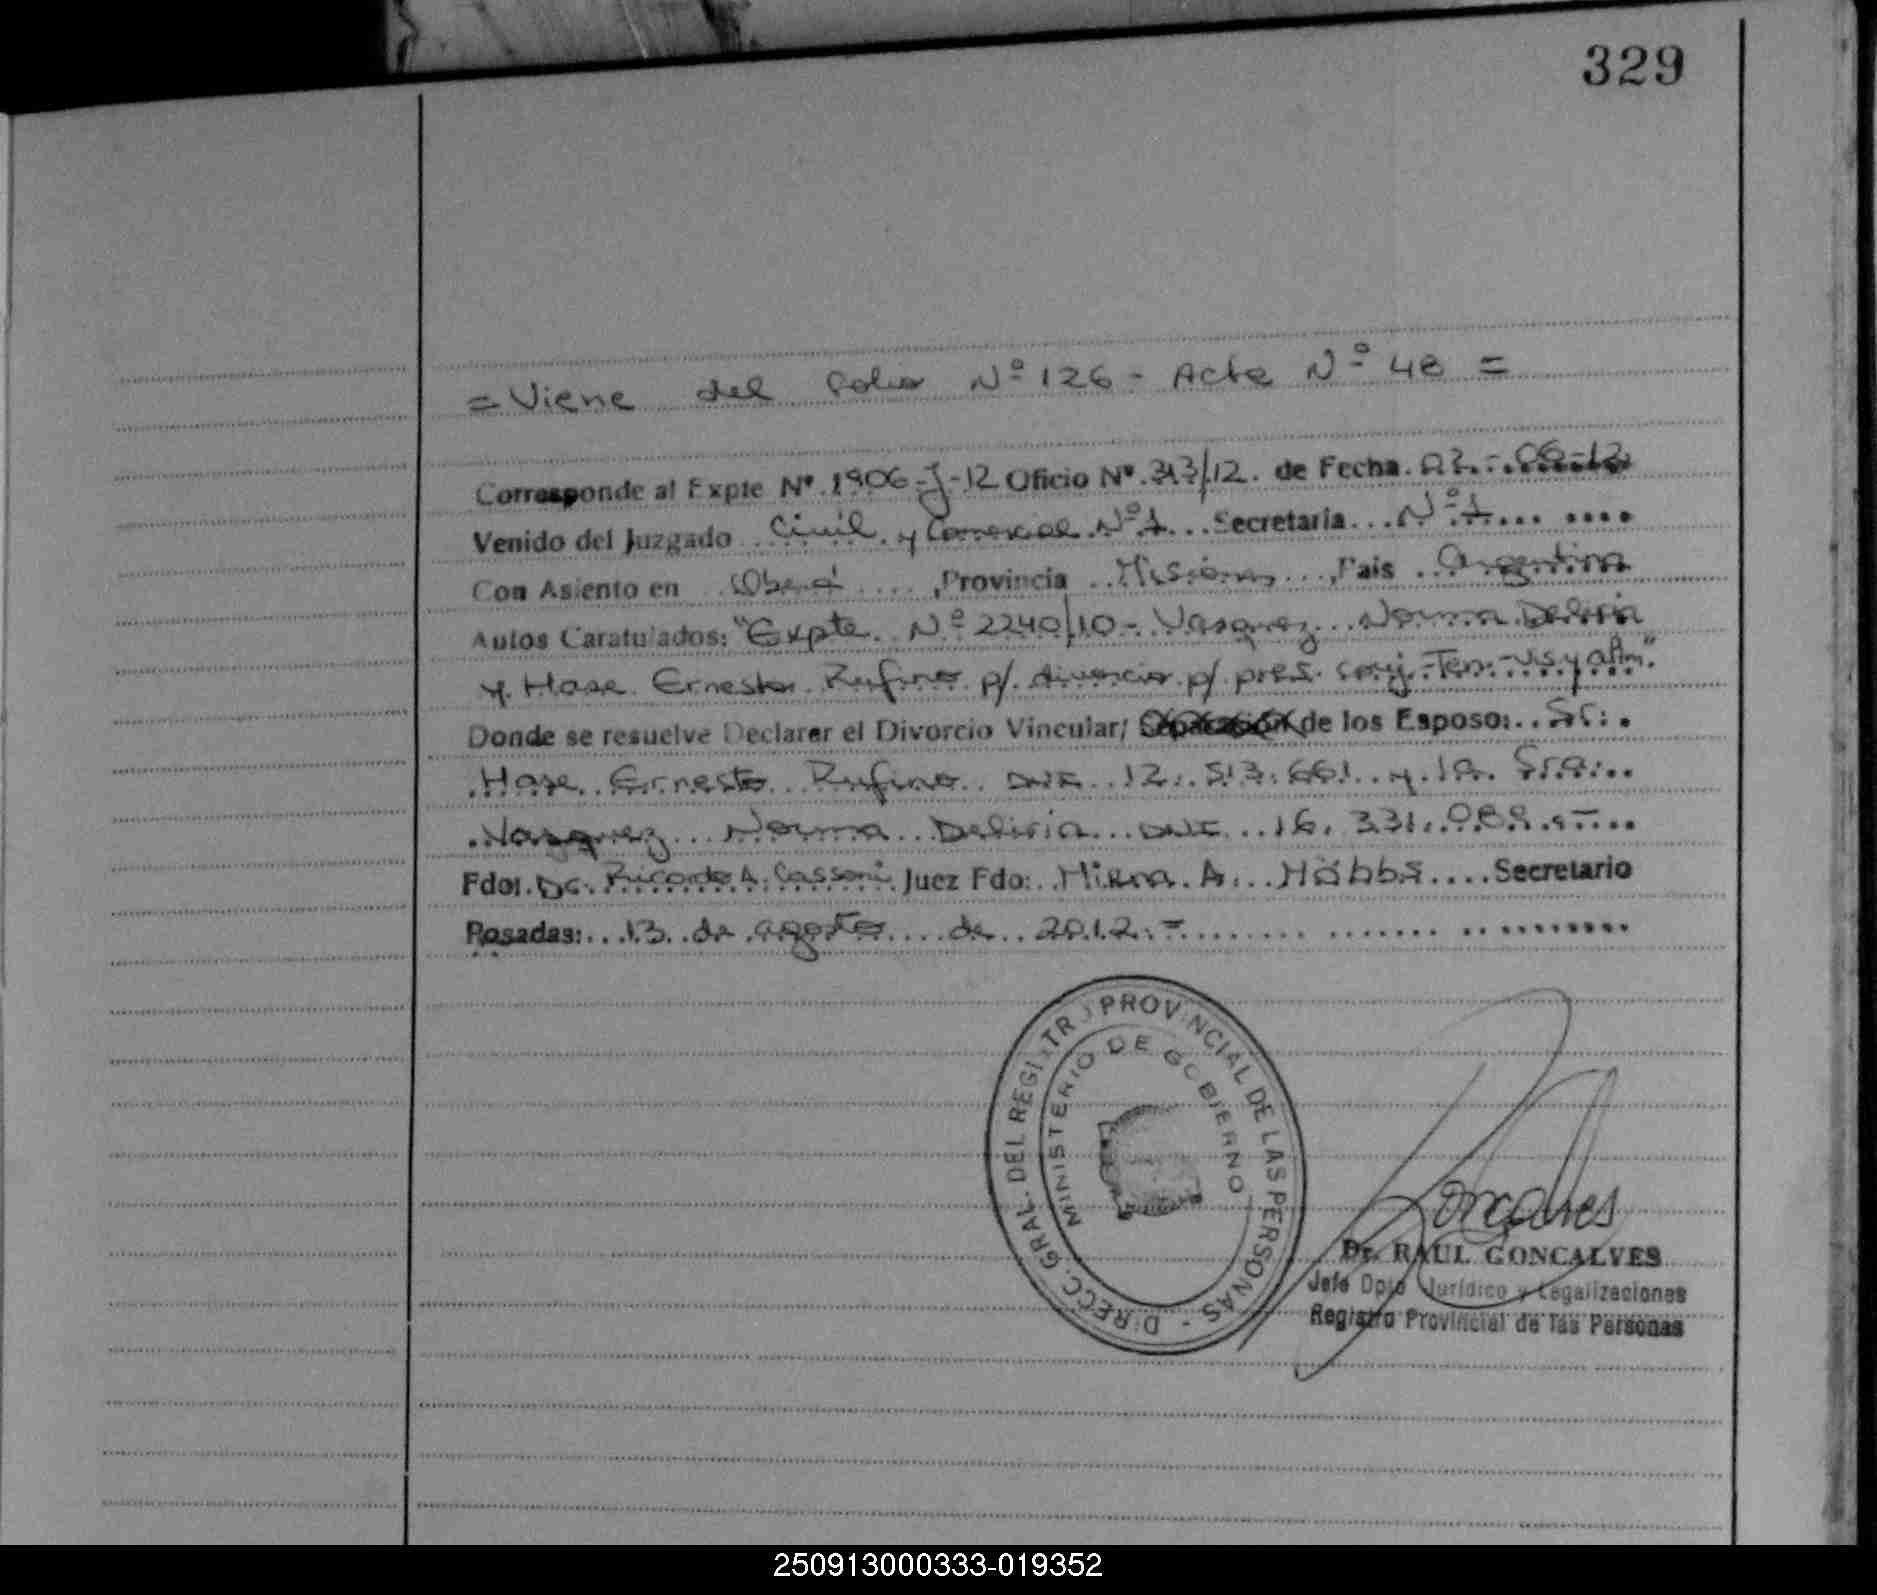 329
= Viene del Folio Nº 126 - Acta Nº 48 =
Corresponde al Expte Nº. 1906-J-12 Oficio Nº. 313/12. de Fecha. 02.-.08-12.
Venido del Juzgado Civil y Comercial Nº 1 Secretaria Nº 1
Con Asiento en Oberá, Provincia Misiones, Pais Argentina
Autos Caratulados: "Expte. Nº 2240/10 - Vasquez Norma Deliria
y Hase Ernesto Rufino p/ divorcio p/ pres. conj.-Ten.-vis y alim."
Donde se resuelve Declarar el Divorcio Vincular/ Separación de los Esposo: Sr.:
Hase Ernesto Rufino DNI 12.513.661 y la Sra.
Vasquez Norma Deliria DNI 16.331.088.-
Fdo: Dr. Ricardo A. Cassoni Juez Fdo: A. Hobbs Secretario
Posadas: 13 de agosto de 2012.=
DIRECC. GRAL. DEL REGISTRO PROVINCIAL DE LAS PERSONAS -
MINISTERIO DE GOBIERNO
Goncalves
Dr. RAUL GONCALVES
Jefe Dpto Jurídico y Legalizaciones
Registro Provincial de las Personas
250913000333-019352